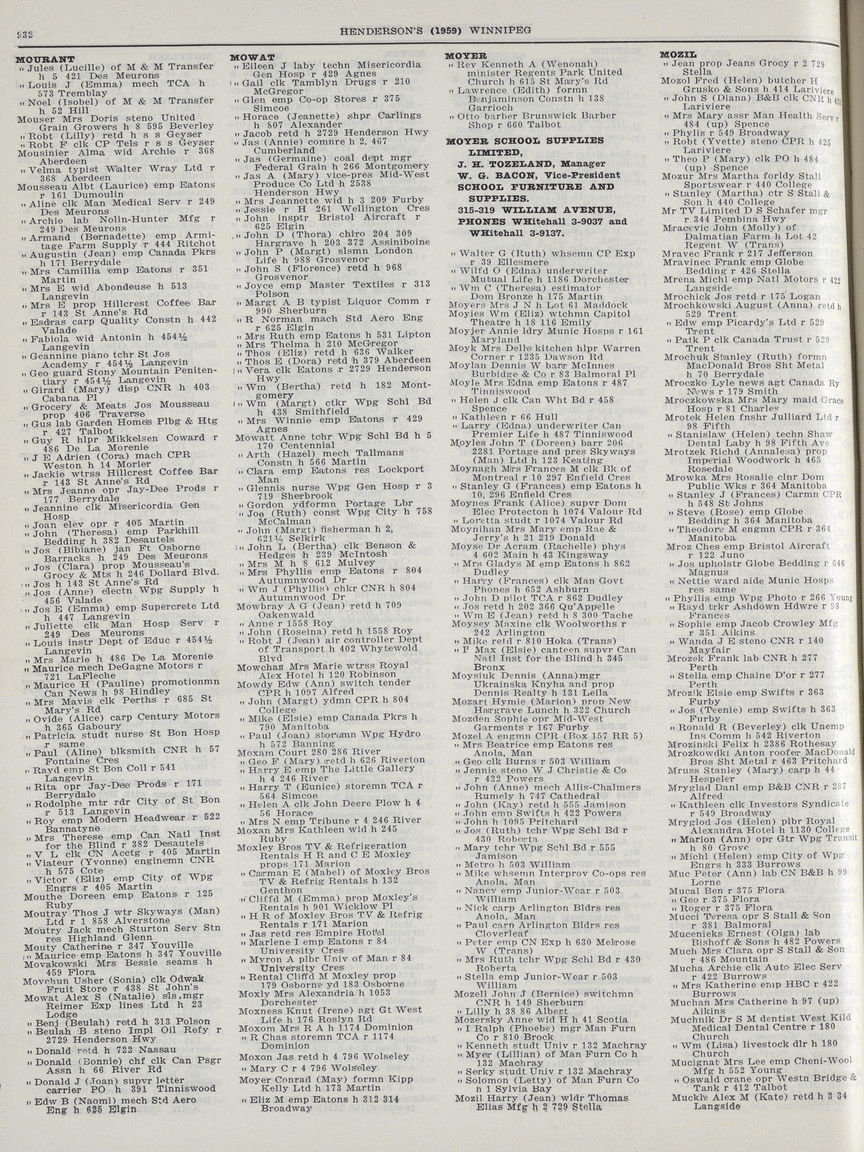 932
HENDERSON'S (1959) WINNIPEG
MOURANT
" Jules (Lucille) of M & M Transfer
h 5 421 Des Meurons
" Louis J (Emma) mech TCA h
573 Tremblay
" Noel (Isobel) of M & M Transfer
h 52 Hill
Mouser Mrs Doris steno United
Grain Growers h 8 595 Beverley
" Robt (Lilly) retd h s s Geyser
" Robt F clk CP Tels r s s Geyser
Mousinier Alma wid Archie r 368
Aberdeen
" Velma typist Walter Wray Ltd r
368 Aberdeen
Mousseau Albt (Laurice) emp Eatons
r 161 Dumoulin
" Aline clk Man Medical Serv r 249
Des Meurons
" Archie lab Nolin-Hunter Mfg r
249 Des Meurons
" Armand (Bernadette) emp Armi-
tage Farm Supply r 444 Ritchot
" Augustin (Jean) emp Canada Pkrs
h 171 Berrydale
" Mrs Camillia emp Eatons r 351
Martin
" Mrs E wid Abondeuse h 513
Langevin
" Mrs E prop Hillcrest Coffee Bar
r 143 St Anne's Rd
" Esdras carp Quality Constn h 442
Valade
" Fabiola wid Antonin h 454½
Langevin
" Geannine piano tchr St Jos
Academy r 454½ Langevin
" Geo guard Stony Mountain Peniten-
tiary r 454½ Langevin
" Girard (Mary) disp CNR h 403
Cabana Pl
" Grocery & Meats Jos Mousseau
prop 406 Traverse
" Gus lab Garden Homes Plbg & Htg
r 427 Talbot
" Guy R hlpr Mikkelsen Coward r
486 De La Morenie
" J E Adrien (Cora) mach CPR
Weston h 14 Morier
" Jackie wtrss Hillcrest Coffee Bar
r 143 St Anne's Rd
" Mrs Jeanne opr Jay-Dee Prods r
177 Berrydale
" Jeannine clk Misericordia Gen
Hosp
" Joan elev opr r 405 Martin
" John (Theresa) emp Parkhill
Bedding h 382 Desautels
" Jos (Bibiane) jan Ft Osborne
Barracks h 249 Des Meurons
" Jos (Clara) prop Mousseau's
Grocy & Mts h 246 Dollard Blvd.
" Jos h 143 St Anne's Rd
" Jos (Anne) electn Wpg Supply h
456 Valade
" Jos E (Emma) emp Supercrete Ltd
h 447 Langevin
" Juliette clk Man Hosp Serv r
249 Des Meurons
" Louis instr Dept of Educ r 454½
Langevin
" Mrs Marie h 486 De La Morenie
" Maurice mech DeGagne Motors r
721 LaFleche
" Maurice H (Pauline) promotionmn
Can News h 98 Hindley
" Mrs Mavis clk Perths r 685 St
Mary's Rd
" Ovide (Alice) carp Century Motors
h 365 Gaboury
" Patricia studt nurse St Bon Hosp
r same
" Paul (Aline) blksmith CNR h 57
Fontaine Cres
" Rayd emp St Bon Coll r 541
Langevin
" Rita opr Jay-Dee Prods r 171
Berrydale
" Rodolphe mtr rdr City of St Bon
r 513 Langevin
" Roy emp Modern Headwear r 522
Bannatyne
" Mrs Therese emp Can Natl Inst
for the Blind r 382 Desautels
" V L clk CN Acctg r 405 Martin
" Viateur (Yvonne) enginemn CNR
h 575 Cote
" Victor (Eliz) emp City of Wpg
Engrs r 405 Martin
Mouthe Doreen emp Eatons r 125
Ruby
Moutray Thos J wtr Skyways (Man)
Ltd r 1 858 Alverstone
Moutry Jack mech Sturton Serv Stn
res Highland Glenn
Mouty Catherine r 347 Youville
" Maurice emp Eatons h 347 Youville
Movakowski Mrs Bessie seams h
459 Flora
Movchun Usher (Sonia) clk Odwak
Fruit Store r 438 St John's
Mowat Alex S (Natalie) sls mgr
Reimer Exp lines Ltd h 23
Lodge
" Benj (Beulah) retd h 313 Polson
" Beulah B steno Impl Oil Refy r
2729 Henderson Hwy
" Donald retd h 722 Nassau
" Donald (Bonnie) chf clk Can Psgr
Assn h 66 River Rd
" Donald J (Joan) supvr letter
carrier PO h 391 Tinniswood
" Edw B (Naomi) mech Std Aero
Eng h 625 Elgin
MOWAT
" Eileen J laby techn Misericordia
Gen Hosp r 429 Agnes
" Gail clk Tamblyn Drugs r 210
McGregor
" Glen emp Co-op Stores r 375
Simcoe
" Horace (Jeanette) shpr Carlings
h 807 Alexander
" Jacob retd h 2729 Henderson Hwy
" Jas (Annie) comnre h 2, 467
Cumberland
" Jas (Germaine) coal dept mgr
Federal Grain h 266 Montgomery
" Jas A (Mary) vice-pres Mid-West
Produce Co Ltd h 2538
Henderson Hwy
" Mrs Jeannette wid h 3 209 Furby
" Jessie r H 261 Wellington Cres
" John inspr Bristol Aircraft r
625 Elgin
" John D (Thora) chiro 204 309
Hargrave h 203 372 Assiniboine
" John P (Margt) slsmn London
Life h 988 Grosvenor
" John S (Florence) retd h 968
Grosvenor
" Joyce emp Master Textiles r 313
Polson
" Margt A B typist Liquor Comm r
990 Sherburn
" R Norman mach Std Aero Eng
r 625 Elgin
" Mrs Ruth emp Eatons h 531 Lipton
" Mrs Thelma h 210 McGregor
" Thos (Eliz) retd h 636 Walker
" Thos E (Dora) retd h 379 Aberdeen
" Vera clk Eatons r 2729 Henderson
Hwy
" Wm (Bertha) retd h 182 Mont-
gomery
" Wm (Margt) ctkr Wpg Schl Bd
h 438 Smithfield
" Mrs Winnie emp Eatons r 429
Agnes
Mowatt Anne tchr Wpg Schl Bd h 5
170 Centennial
" Arth (Hazel) mech Tallmans
Constn h 566 Martin
" Clara emp Eatons res Lockport
Man
" Glennis nurse Wpg Gen Hosp r 3
719 Sherbrook
" Gordon ydformn Portage Lbr
" Joe (Ruth) const Wpg City h 758
McCalman
" John (Margt) fisherman h 2,
621½ Selkirk
" John L (Bertha) clk Benson &
Hedges h 239 McIntosh
" Mrs M h 8 612 Mulvey
" Mrs Phyllis emp Eatons r 804
Autumnwood Dr
" Wm J (Phyllis) chkr CNR h 804
Autumnwood Dr
Mowbray A G (Jean) retd h 709
Oakenwald
" Anne r 1558 Roy
" John (Roseina) retd h 1558 Roy
" Robt J (Jean) air controller Dept
of Transport h 402 Whytewold
Blvd
Mowchan Mrs Marie wtrss Royal
Alex Hotel h 120 Robinson
Mowdy Edw (Ann) switch tender
CPR h 1097 Alfred
" John (Margt) ydmn CPR h 804
College
" Mike (Elsie) emp Canada Pkrs h
790 Manitoba
" Paul (Joan) storamn Wpg Hydro
h 572 Banning
Moxam Court 280 286 River
" Geo F (Mary) retd h 626 Riverton
" Harry E emp The Little Gallery
h 4 246 River
" Harry T (Eunice) storemn TCA r
564 Simcoe
" Helen A clk John Deere Plow h 4
56 Horace
" Mrs N emp Tribune r 4 246 River
Moxan Mrs Kathleen wid h 245
Ruby
Moxley Bros TV & Refrigeration
Rentals H R and C E Moxley
props 171 Marion
" Carman E (Mabel) of Moxley Bros
TV & Refrig Rentals h 132
Genthon
" Cliffd M (Emma) prop Moxley's
Rentals h 901 Wicklow Pl
" H R of Moxley Bros TV & Refrig
Rentals r 171 Marion
" Jas retd res Empire Hotel
" Marlene I emp Eatons r 84
University Cres
" Myron A plbr Univ of Man r 84
University Cres
" Rental Cliffd M Moxley prop
179 Osborne yd 183 Osborne
Moxly Mrs Alexandria h 1053
Dorchester
Moxness Knut (Irene) agt Gt West
Life h 176 Roslyn Rd
Moxom Mrs R A h 1174 Dominion
" R Chas storemn TCA r 1174
Dominion
Moxon Jas retd h 4 796 Wolseley
" Mary C r 4 796 Wolseley
Moyer Conrad (May) formn Kipp
Kelly Ltd h 173 Martin
" Eliz M emp Eatons h 312 314
Broadway
MOYER
" Rev Kenneth A (Wenonah)
minister Regents Park United
Church h 615 St Mary's Rd
" Lawrence (Edith) formn
Benjaminson Constn h 138
Garrioch
" Otto barber Brunswick Barber
Shop r 660 Talbot
MOYER SCHOOL SUPPLIES
LIMITED,
J. H. TOZELAND, Manager
W. G. BACON, Vice-President
SCHOOL FURNITURE AND
SUPPLIES.
315-319 WILLIAM AVENUE,
PHONES WHitehall 3-9037 and
WHitehall 3-9137.
" Walter G (Ruth) whsemn CP Exp
r 39 Ellesmere
" Wilfd O (Edna) underwriter
Mutual Life h 1186 Dorchester
" Wm C (Theresa) estimator
Dom Bronze h 175 Martin
Moyers Mrs J N h Lot 61 Maddock
Moyies Wm (Eliz) wtchmn Capitol
Theatre h 18 116 Emily
Moyjer Annie ldry Munic Hosps r 161
Maryland
Moyk Mrs Delle kitchen hlpr Warren
Corner r 1235 Dawson Rd
Moylan Dennis W barr McInnes
Burbidge & Co r 83 Balmoral Pl
Moyle Mrs Edna emp Eatons r 487
Tinniswood
" Helen J clk Can Wht Bd r 458
Spence
" Kathleen r 66 Hull
" Larry (Edna) underwriter Can
Premier Life h 487 Tinniswood
Moyles John T (Doreen) barr 206
2281 Portage and pres Skyways
(Man) Ltd h 123 Keating
Moynagh Mrs Frances M clk Bk of
Montreal r 10 297 Enfield Cres
" Stanley G (Frances) emp Eatons h
10, 296 Enfield Cres
Moynes Frank (Alice) supvr Dom
Elec Protecton h 1074 Valour Rd
" Loretta studt r 1074 Valour Rd
Moynihan Mrs Mary emp Rae &
Jerry's h 21 219 Donald
Moyse Dr Acram (Rachelle) phys
4 602 Main h 43 Kingsway
" Mrs Gladys M emp Eatons h 862
Dudley
" Harry (Frances) clk Man Govt
Phones h 652 Ashburn
" John D pilot TCA r 862 Dudley
" Jos retd h 202 366 Qu'Appelle
" Wm E (Jean) retd h 8 300 Tache
Moysey Maxine clk Woolworths r
242 Arlington
" Mike retd r 810 Hoka (Trans)
" P Max (Elsie) canteen supvr Can
Natl Inst for the Blind h 345
Bronx
Moysiuk Dennis (Anna) mgr
Ukrainska Knyha and prop
Dennis Realty h 131 Leila
Mozart Hymie (Marion) prop New
Hargrave Lunch h 322 Church
Mozden Sophie opr Mid-West
Garments r 167 Furby
Mozel A engmn CPR (Box 157 RR 5)
" Mrs Beatrice emp Eatons res
Anola, Man
" Geo clk Burns r 503 William
" Jennie steno W J Christie & Co
r 422 Powers
" John (Anne) mech Allis-Chalmers
Rumely h 747 Cathedral
" John (Kay) retd h 555 Jamison
" John emp Swifts h 422 Powers
" John h 1095 Pritchard
" Jos (Ruth) tchr Wpg Schl Bd r
430 Roberta
" Mary tchr Wpg Schl Bd r 555
Jamison
" Metro h 503 William
" Mike whsemn Interprov Co-ops res
Anola, Man
" Nancy emp Junior-Wear r 503
William
" Nick carp Arlington Bldrs res
Anola, Man
" Paul carp Arlington Bldrs res
Cloverleaf
" Peter emp CN Exp h 630 Melrose
W (Trans)
" Mrs Ruth tchr Wpg Schl Bd r 430
Roberta
" Stella emp Junior-Wear r 503
William
Mozell John J (Bernice) switchmn
CNR h 149 Sherburn
" Lilly h 38 86 Albert
Mozersky Anne wid H h 41 Scotia
" I Ralph (Phoebe) mgr Man Furn
Co r 810 Brock
" Kenneth studt Univ r 132 Machray
" Myer (Lillian) of Man Furn Co h
132 Machray
" Serky studt Univ r 132 Machray
" Solomon (Letty) of Man Furn Co
h 1 Sylvia Bay
Mozil Harry (Jean) wldr Thomas
Elias Mfg h 2 729 Stella
MOZIL
" Jean prop Jeans Grocy r 2 729
Stella
Mozol Fred (Helen) butcher H
Grusko & Sons h 414 Lariviere
" John S (Diana) B&B clk CNR h
Lariviere
" Mrs Mary assr Man Health Serv r
484 (up) Spence
" Phyllis r 549 Broadway
" Robt (Yvette) steno CPR h 425
Lariviere
" Theo P (Mary) clk PO h 484
(up) Spence
Mozur Mrs Martha forldy Stall
Sportswear r 440 College
" Stanley (Martha) ctr S Stall &
Son h 440 College
Mr TV Limited D S Schafer mgr
r 344 Pembina Hwy
Mracevic John (Molly) of
Dalmatian Farm h Lot 42
Regent W (Trans)
Mravec Frank r 217 Jefferson
Mravinec Frank emp Globe
Bedding r 426 Stella
Mrena Michl emp Natl Motors r 421
Langside
Mrochick Jos retd r 175 Logan
Mrochkowski August (Anna) retd h
529 Trent
" Edw emp Picardy's Ltd r 529
Trent
" Patk P clk Canada Trust r 529
Trent
Mrochuk Stanley (Ruth) formn
MacDonald Bros Sht Metal
h 70 Berrydale
Mroczko Lyle news agt Canada Ry
News r 179 Smith
Mroczkowska Mrs Mary maid Grace
Hosp r 81 Charles
Mrotek Helen fnshr Julliard Ltd r
98 Fifth
" Stanislaw (Helen) techn Shaw
Dental Laby h 98 Fifth Ave
Mrotzek Richd (Annalesa) prop
Imperial Woodwork h 465
Rosedale
Mrowka Mrs Rosalie clnr Dom
Public Wks r 364 Manitoba
" Stanley J (Frances) Carmn CPR
h 548 St Johns
" Steve (Rose) emp Globe
Bedding h 364 Manitoba
" Theodore M engmn CPR r 364
Manitoba
Mroz Ches emp Bristol Aircraft
r 122 Juno
" Jos upholstr Globe Bedding r 646
Magnus
" Nettie ward aide Munic Hosps
res same
" Phyllis emp Wpg Photo r 266 Young
" Rayd trkr Ashdown Hdwre r 98
Frances
" Sophie emp Jacob Crowley Mfg
r 351 Aikins
" Wanda J E steno CNR r 140
Mayfair
Mrozek Frank lab CNR h 277
Perth
" Stella emp Chaine D'or r 277
Perth
Mrozik Elsie emp Swifts r 363
Furby
" Jos (Teenie) emp Swifts h 363
Furby
" Ronald R (Beverley) clk Unemp
Ins Comm h 542 Riverton
Mrozinski Felix h 2386 Rothesay
Mrozkowki Anton roofer MacDonald
Bros Sht Metal r 463 Pritchard
Mruss Stanley (Mary) carp h 44
Hespeler
Mryglad Danl emp B&B CNR r 287
Alfred
" Kathleen clk Investors Syndicate
r 549 Broadway
Mryglod Jos (Helen) plbr Royal
Alexandra Hotel h 1130 College
" Marion (Ann) opr Gtr Wpg Transit
h 80 Grove
" Michl (Helen) emp City of Wpg
Engrs h 333 Burrows
Muc Peter (Ann) lab CN B&B h 99
Lorne
Mucal Ben r 375 Flora
" Geo r 375 Flora
" Roger r 375 Flora
Mucci Teresa opr S Stall & Son
r 381 Balmoral
Mucenieks Ernest (Olga) lab
Bishoff & Sons h 482 Powers
Much Mrs Clara opr S Stall & Son
r 486 Mountain
Mucha Archie clk Auto Elec Serv
r 422 Burrows
" Mrs Katherine emp HBC r 422
Burrows
Muchan Mrs Catherine h 97 (up)
Aikins
Muchnik Dr S M dentist West Kild
Medical Dental Centre r 180
Church
" Wm (Lisa) livestock dlr h 180
Church
Mucignat Mrs Lee emp Cheni-Wool
Mfg h 552 Young
" Oswald crane opr Westn Bridge &
Tank r 412 Talbot
Muckle Alex M (Kate) retd h 3 34
Langside